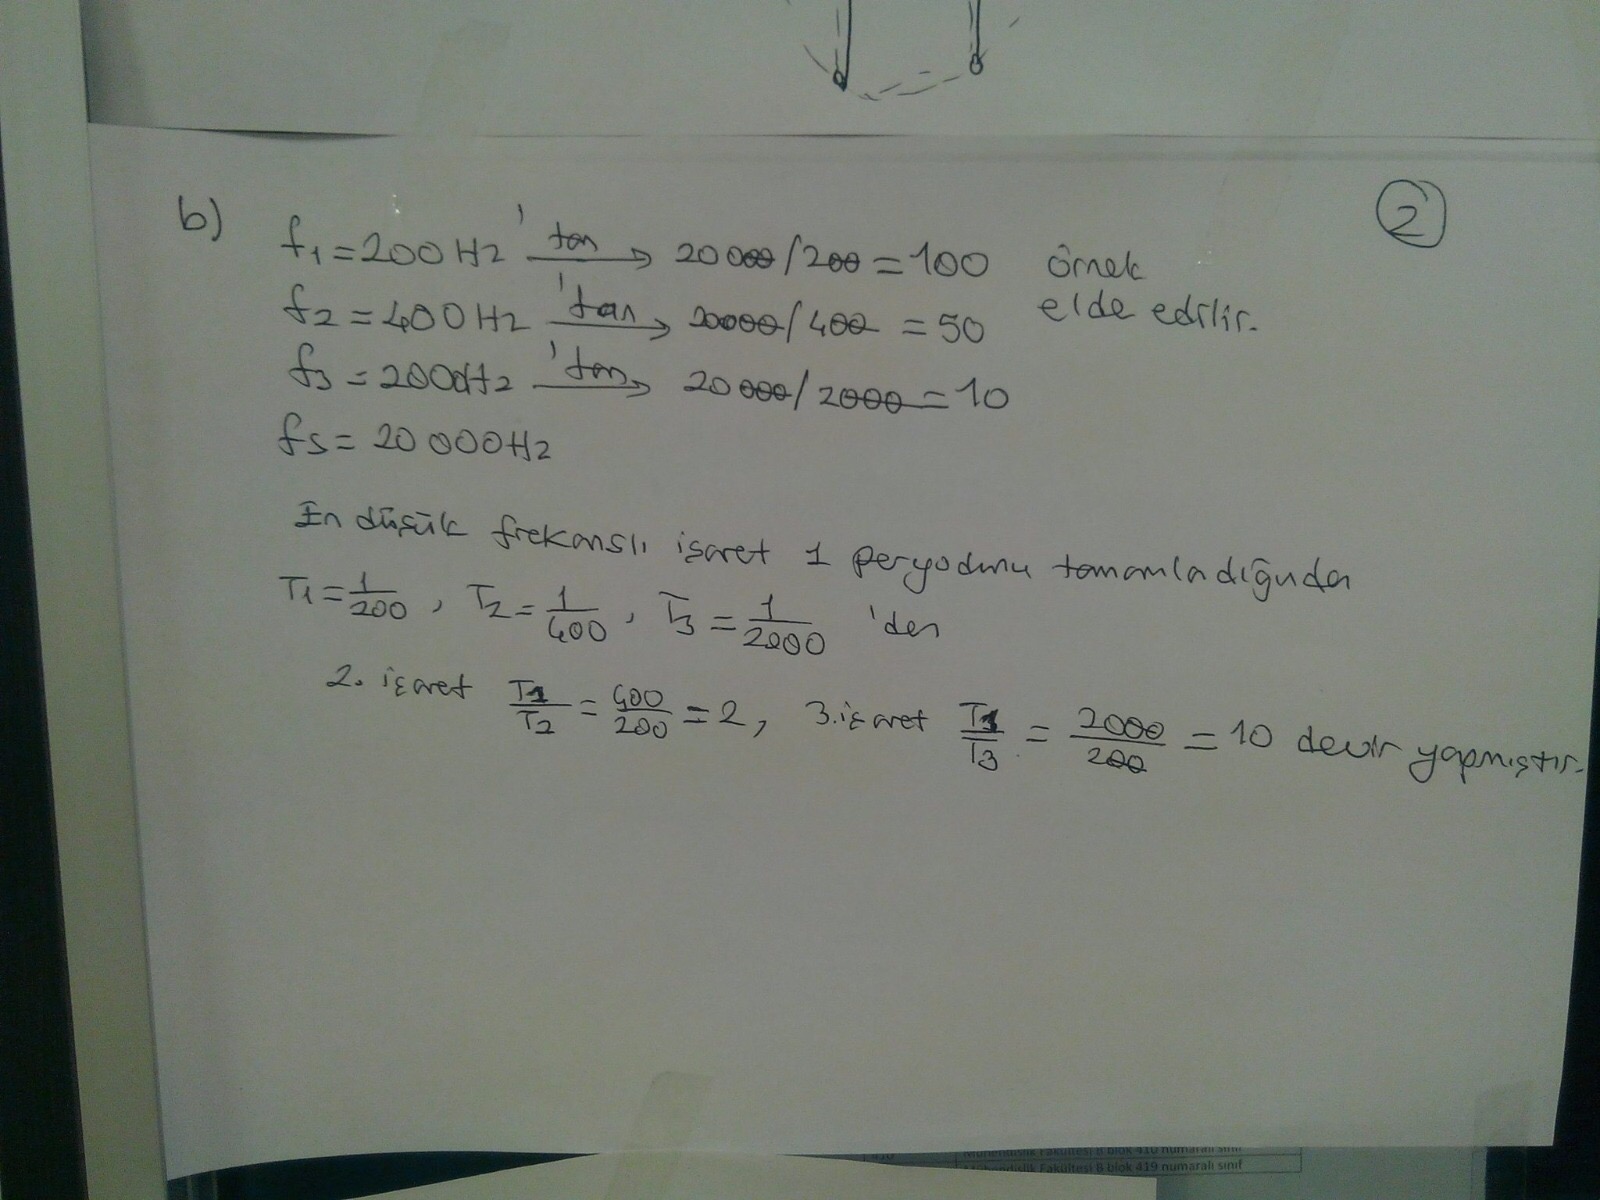 b)
2
f1 = 200 Hz 'tan → 20000/200 = 100 örnek
f2 = 400 Hz 'tan → 20000/400 = 50 elde edilir.
f3 = 2000Hz 'ten → 20000/2000 = 10
fs = 20 000Hz
En düşük frekanslı işaret 1 peryodunu tamamladığında
T1 = 1/200 , T2 = 1/400 , T3 = 1/2000 'den
2. işaret T1/T2 = 400/200 = 2, 3. işaret T1/T3 = 2000/200 = 10 devir yapmıştır.
Mühendislik Fakültesi B blok 410 numaralı sınıf
Mühendislik Fakültesi B blok 419 numaralı sınıf